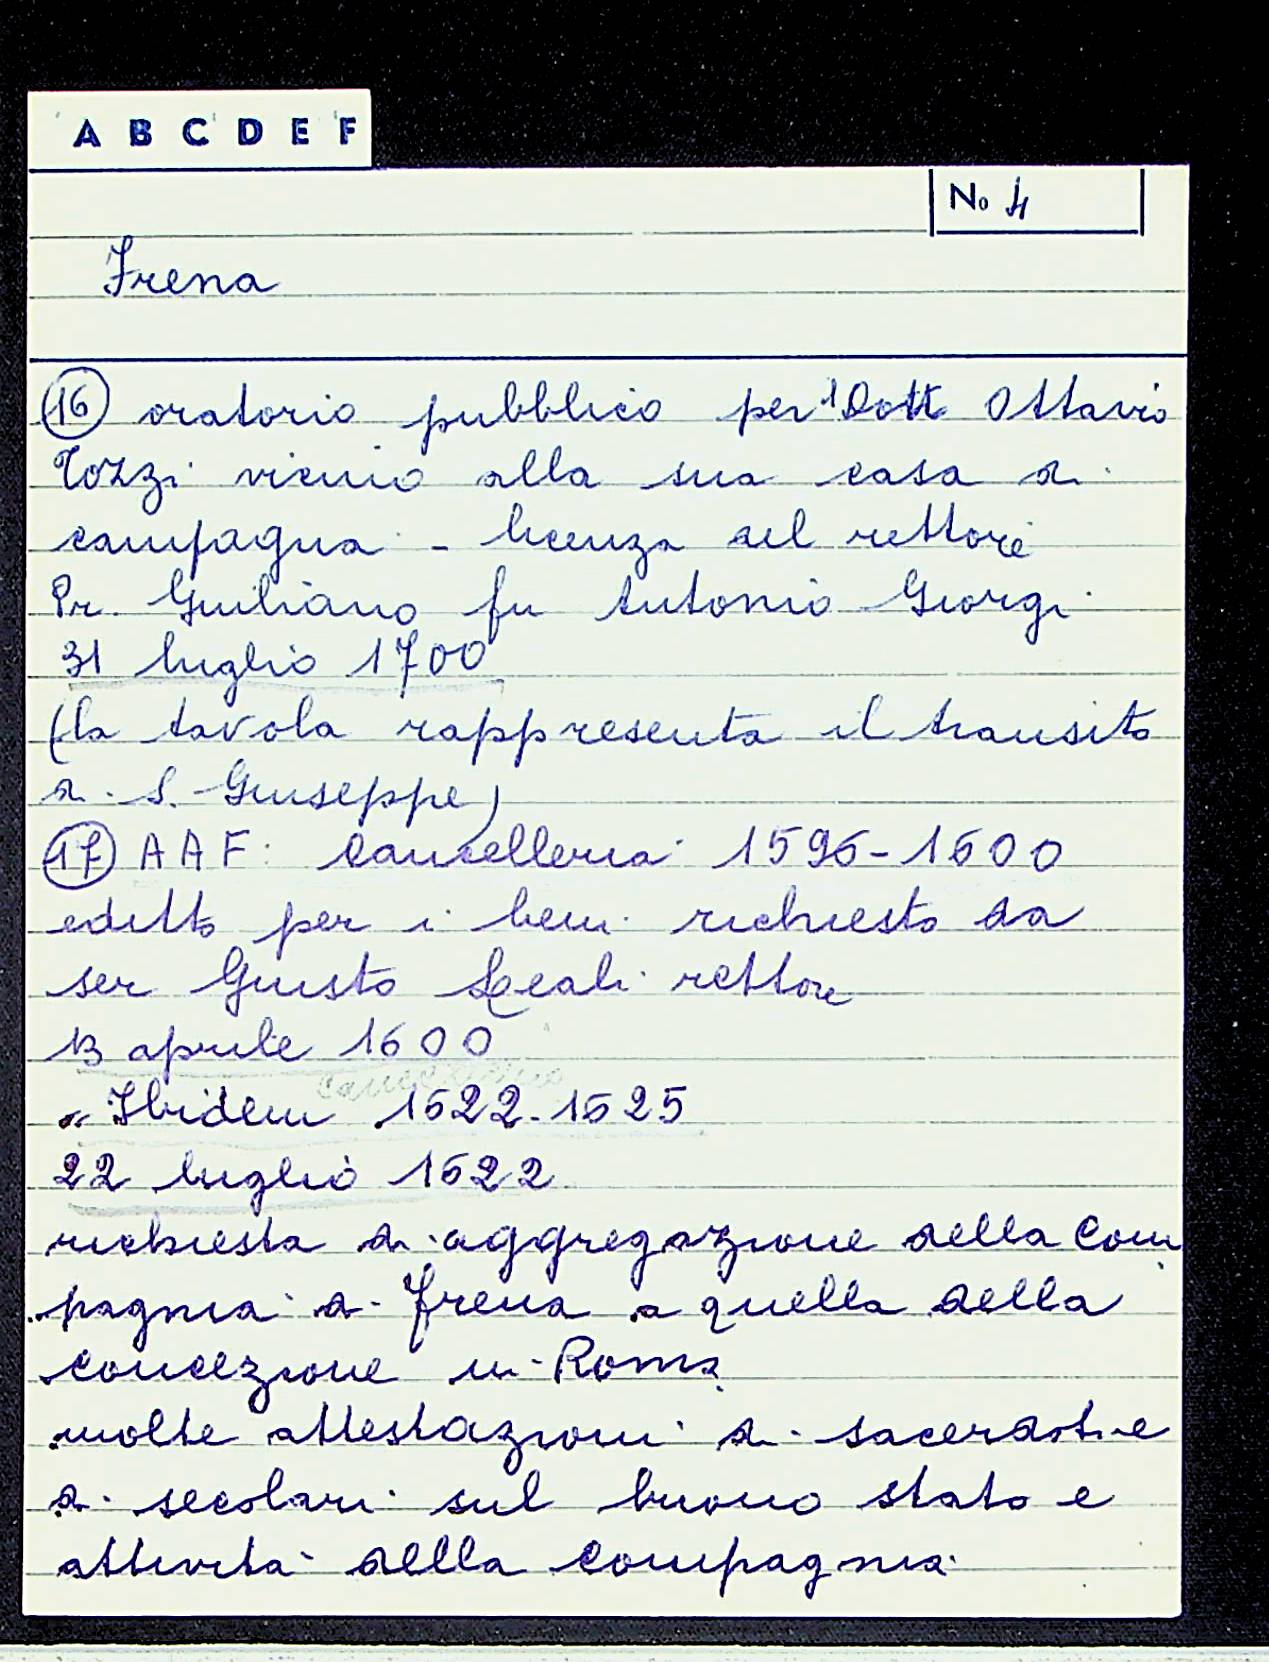 A B C D E F
No 4
Frena
16 oratorio pubblico per 'l Dott Ottavio
Tozzi vicino alla sua casa di
campagna - licenza del rettore
Pr. Giuliano fu Antonio Giorgi
31 luglio 1700
(la tavola rappresenta il transito
di S. Giuseppe)
17 AAF: Cancelleria 1596-1600
editto per i beni richiesto da
ser Giusto Leali rettore
13 aprile 1600
" Ibidem 1622-1625
22 luglio 1622
richiesta di aggregazione della Com
pagnia di Frena a quella della
Concezione in Roma
molte attestazioni di sacerdoti e
di secolari sul buono stato e
attività della Compagnia